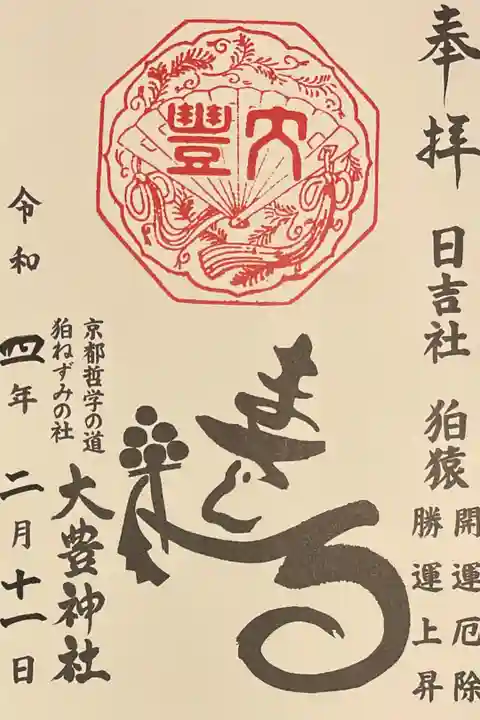 奉拝
日吉社 狛猿
開運厄除
勝運上昇
大豐
まさる
京都哲学の道
狛ねずみの社
大豊神社
令和四年二月十一日